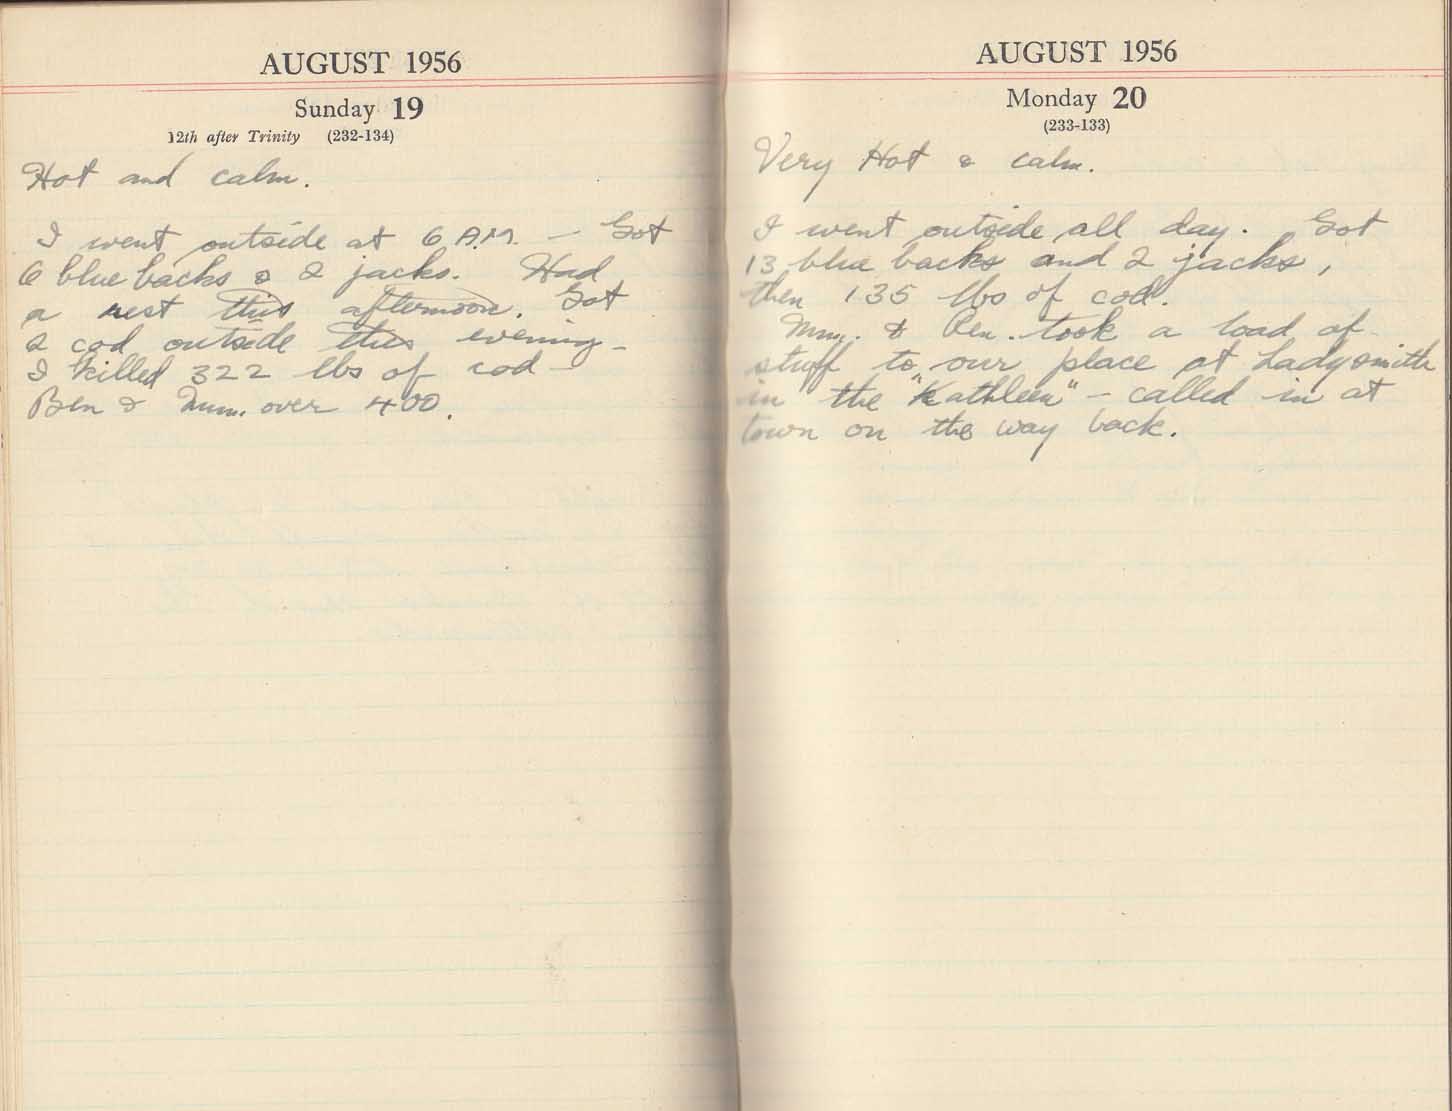 AUGUST 1956
Sunday 19
12th after Trinity (232-134)
Hot and calm.
I went outside at 6 A.M. — Got
6 blue backs & 2 jacks. Had
a rest this afternoon. Got
2 cod outside this evening —
I killed 322 lbs of cod —
Ben & Mum. over 400.
AUGUST 1956
Monday 20
(233-133)
Very Hot & calm.
I went outside all day. Got
13 blue backs and 2 jacks,
then 135 lbs of cod.
Mum. & Ben. took a load of
stuff to our place at Ladysmith
in the "Kathleen" — called in at
town on the way back.